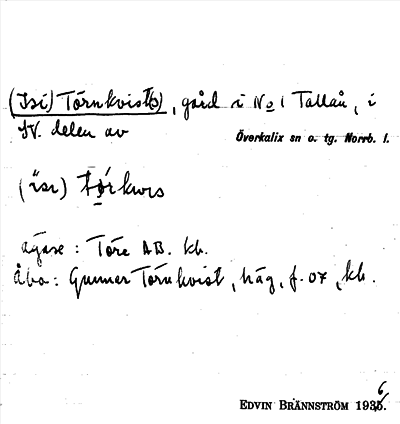 (Isi) Törnkvist(s), gård i No 1 Tallån, i
SV. delen av
Överkalix sn o. tg. Norrb. l.
(isi) tǿrkwɪs
ägare: Töre AB. kb.
Åbo: Gunnar Törnkvist, häg, f. 07, kb.
EDVIN BRÄNNSTRÖM 1936.